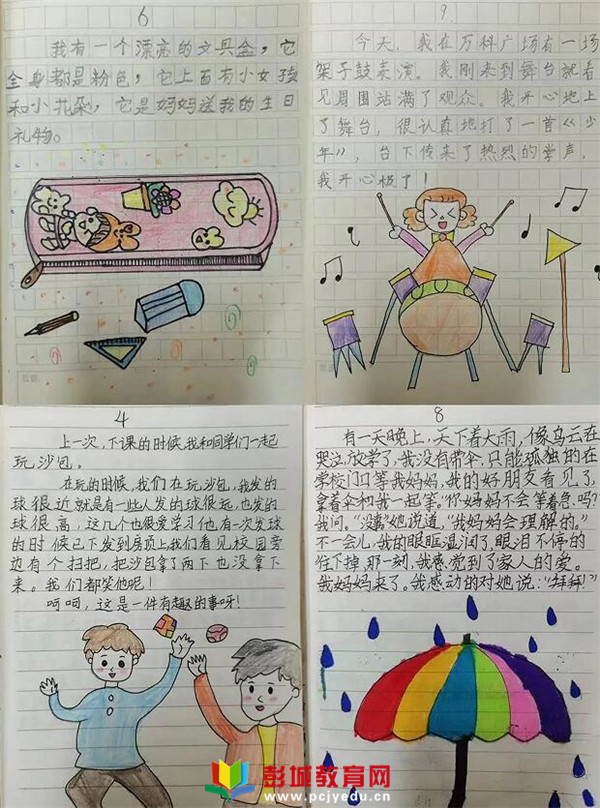 6
我有一个漂亮的文具盒，它
全身都是粉色，它上面有小女孩
和小花朵，它是妈妈送我的生日
礼物。
9
今天，我在万科广场有一场
架子鼓表演。我刚来到舞台就看
见周围站满了观众。我开心地上
了舞台，很认真地打了一首《少
年》，台下传来了热烈的掌声，
我开心极了！
4
上一次，下课的时候，我和同学们一起
玩沙包。
在玩的时候，我们在玩沙包，我发的
球很近就是有一些人发的球很远，也发的
球很高，这几个也很爱学习他，有一次发球
的时候已下发到房顶上，我们看见校园旁
边有个扫把，把沙包拿了两下也没拿下
来。我们都笑他呢！
呵呵，这是一件有趣的事呀！
8
有一天晚上，天下着大雨，像乌云在
哭泣，放学了，我没有带伞，只能孤独的在
学校门口等我妈妈，我的好朋友看见了，
拿着伞和我一起等。"你妈妈不会等着急吗？"
我问。"没事"她说道，"我妈妈会理解的。"
不一会儿，我的眼眶湿润了，眼泪不停的
往下掉，那一刻，我感觉到了家人的爱。
我妈妈来了。我感动的对她说："拜拜！"
彭城教育网
www.pcjyedu.cn